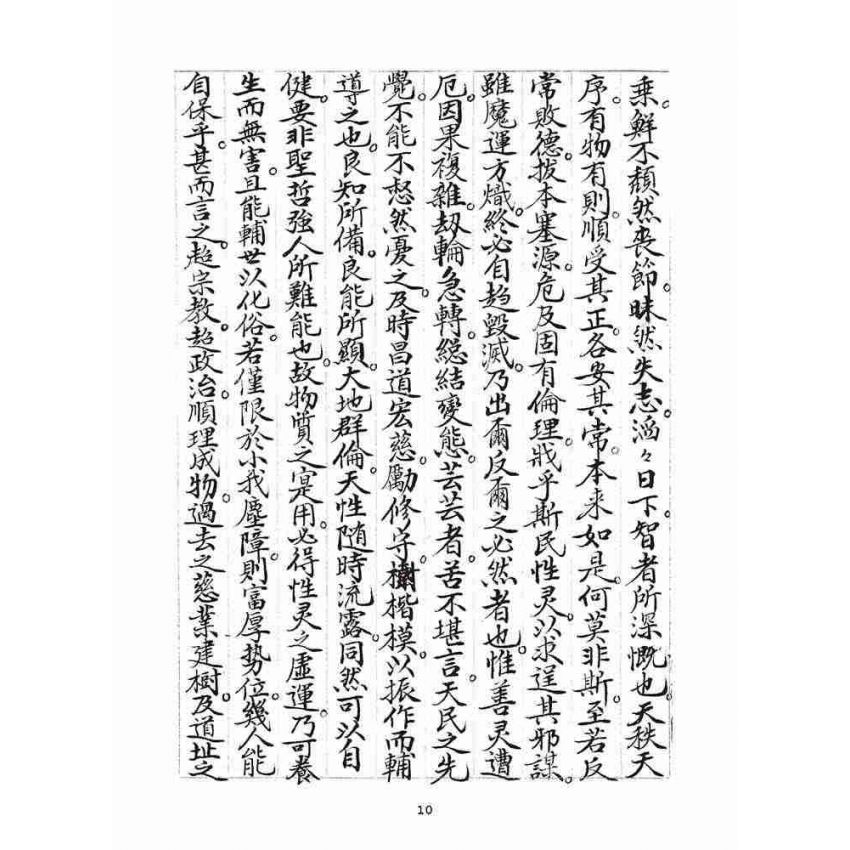 乘。鮮不頹然喪節。昧然失志。滔々日下。智者所深慨也。天秩天
序。有物有則。順受其正。各安其常。本来如是。何莫非斯。至若反
常敗德。拔本塞源。危及固有倫理。戕乎斯民性灵。以求逞其邪謀。
雖魔運方熾。終必自趋毀滅。乃出爾反爾之必然者也。惟善灵遭
厄。因果複雜。刼輪急轉。総結變態。芸芸者。苦不堪言。天民之先
覺。不能不惄然憂之。及時昌道宏慈。勵修守樹楷模。以振作而輔
導之也。良知所備。良能所顯。大地群倫。天性随時流露。同然可以自
健。要非聖哲強人所難能也。故物質之寔用。必得性灵之虛運。乃可養
生而無害。且能輔世以化俗。若僅限於小我塵障。則富厚势位。幾人能
自保乎。甚而言之。趋宗教。趋政治。順理成物。過去之慈業建樹。及道址之
10